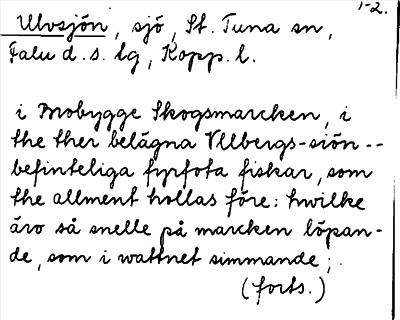 1-2.
Ulvsjön, sjö, St. Tuna sn,
Falu d. s. lg, Kopp. l.
i Brobygge Skogsmarcken, i
the ther belägna Vllbergs-siön --
befinteliga fyrfota fiskar, som
the allment hollas före: hwilke
äro så snelle på marcken löpan-
de, som i wattnet simmande;.
(forts.)